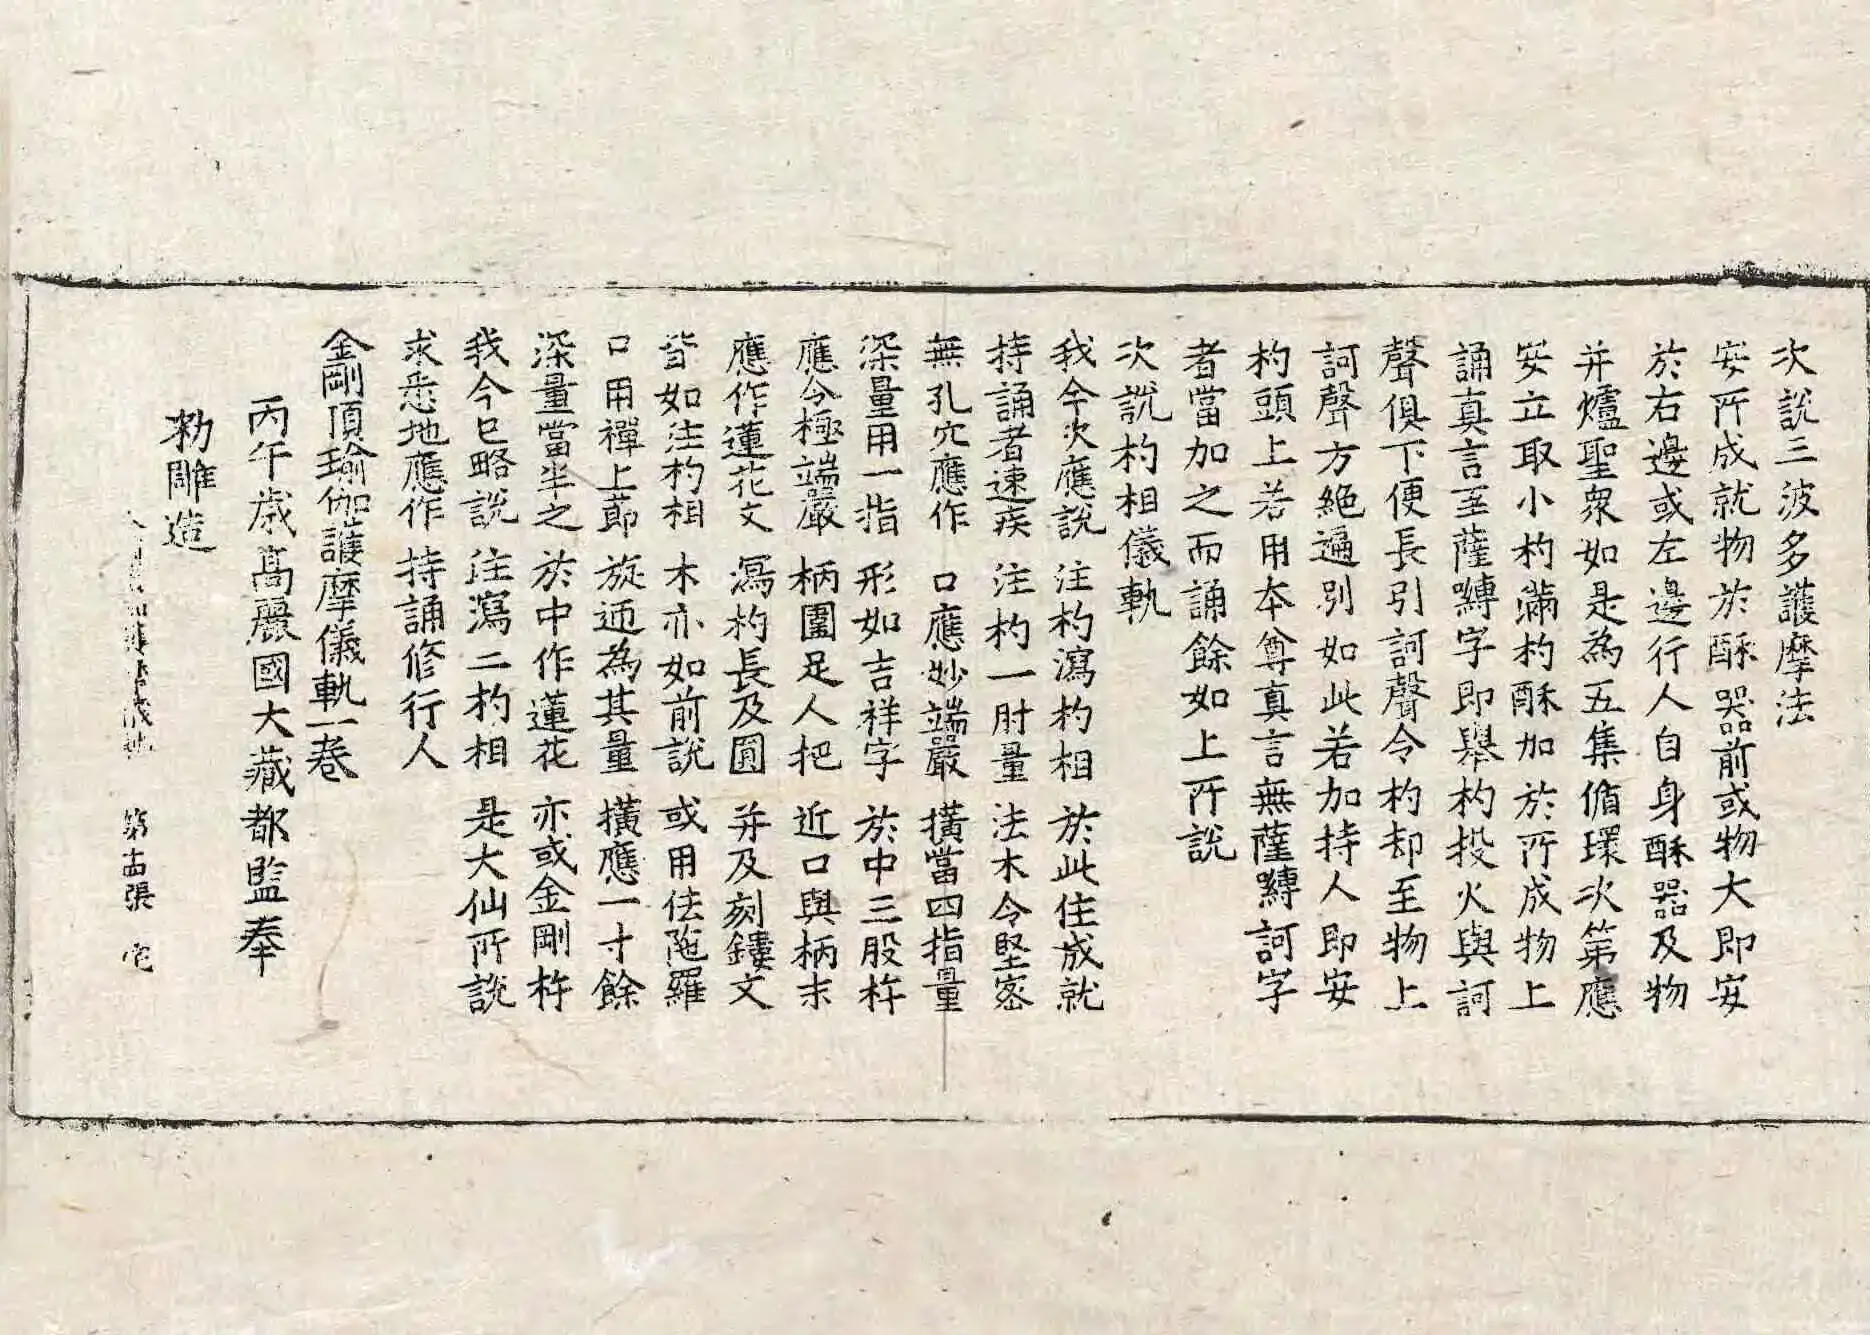 次說三波多護摩法
安所成就物於酥器前或物大即安
於右邊或左邊行人自身酥器及物
并爐聖衆如是為五集循環次第應
安立取小杓滿杓酥加於所成物上
誦真言至薩嚩字即舉杓投火與訶
聲俱下便長引訶聲令杓却至物上
訶聲方絕遍別如此若加持人即安
杓頭上若用本尊真言無薩嚩訶字
者當加之而誦餘如上所說
次說杓相儀軌
我今次應說 注杓瀉杓相 於此住成就
持誦者速疾 注杓一肘量 法木令堅密
無孔穴應作 口應妙端嚴 橫當四指量
深量用一指 形如吉祥字 於中三股杵
應令極端嚴 柄圍足人把 近口與柄末
應作蓮花文 瀉杓長及圓 并及刻鏤文
皆如注杓相 木亦如前說 或用佉陁羅
口用禪上莭 旋迊為其量 橫應一寸餘
深量當半之 於中作蓮花 亦或金剛杵
我今已略說 注瀉二杓相 是大仙所說
求悉地應作 持誦修行人
金剛頂瑜伽護摩儀軌一卷
丙午歲高麗國大藏都監奉
勅雕造
第十四張 宅